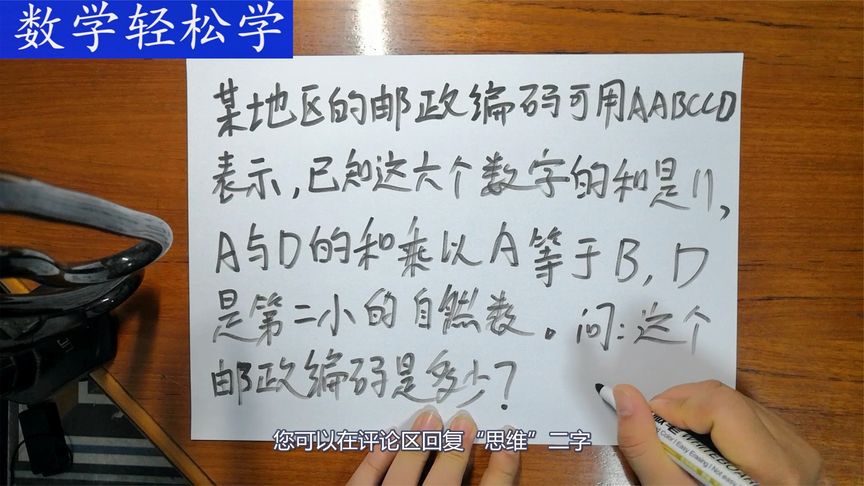 数学轻松学
某地区的邮政编码可用AABCCD
表示,已知这六个数字的和是11,
A与D的和乘以A等于B,D
是第二小的自然数。问:这个
邮政编码是多少?
您可以在评论区回复“思维”二字